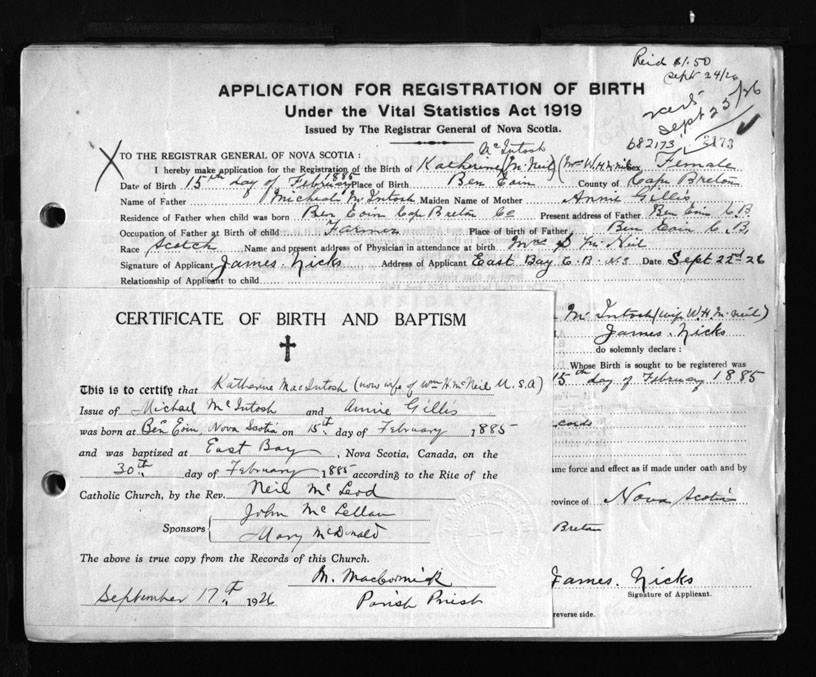 Reid $1.50
Sept 24/26
APPLICATION FOR REGISTRATION OF BIRTH
Under the Vital Statistics Act 1919
Issued by The Registrar General of Nova Scotia.
Sept 23/26
682173
McIntosh
TO THE REGISTRAR GENERAL OF NOVA SCOTIA :
I hereby make application for the Registration of the Birth of Katherine (McNeil) (Mrs W.H. McNeil) Female
Date of Birth 15th day of February 1885 Place of Birth Ben Eoin County of Cape Breton
Name of Father Michael McIntosh Maiden Name of Mother Annie Gillis
Residence of Father when child was born Ben Eoin Cape Breton Co Present address of Father Ben Eoin C.B.
Occupation of Father at Birth of child Farmer Place of birth of Father Ben Eoin C.B.
Race Scotch Name and present address of Physician in attendance at birth Mrs McNeil
Signature of Applicant James Nicks Address of Applicant East Bay C.B. N.S Date Sept 22nd 26
Relationship of Applicant to child
AFFIDAVIT
McIntosh (wife W.H. McNeil)
James Nicks
do solemnly declare :
Whose Birth is sought to be registered was
15th day of February 1885
cords
ame force and effect as if made under oath and by
rovince of Nova Scotia
Breton
James. Nicks
Signature of Applicant.
reverse side.
CERTIFICATE OF BIRTH AND BAPTISM
This is to certify that Katharine MacIntosh (now wife of Wm H. McNeil U.S.A)
Issue of Michael McIntosh and Annie Gillis
was born at Ben Eoin, Nova Scotia on 15th day of February 1885
and was baptized at East Bay, Nova Scotia, Canada, on the
30th day of February 1885 according to the Rite of the
Catholic Church, by the Rev. Neil McLeod
Sponsors { John McLellan
Mary McDonald
The above is true copy from the Records of this Church.
M. MacCormick
September 17th 1926 Parish Priest